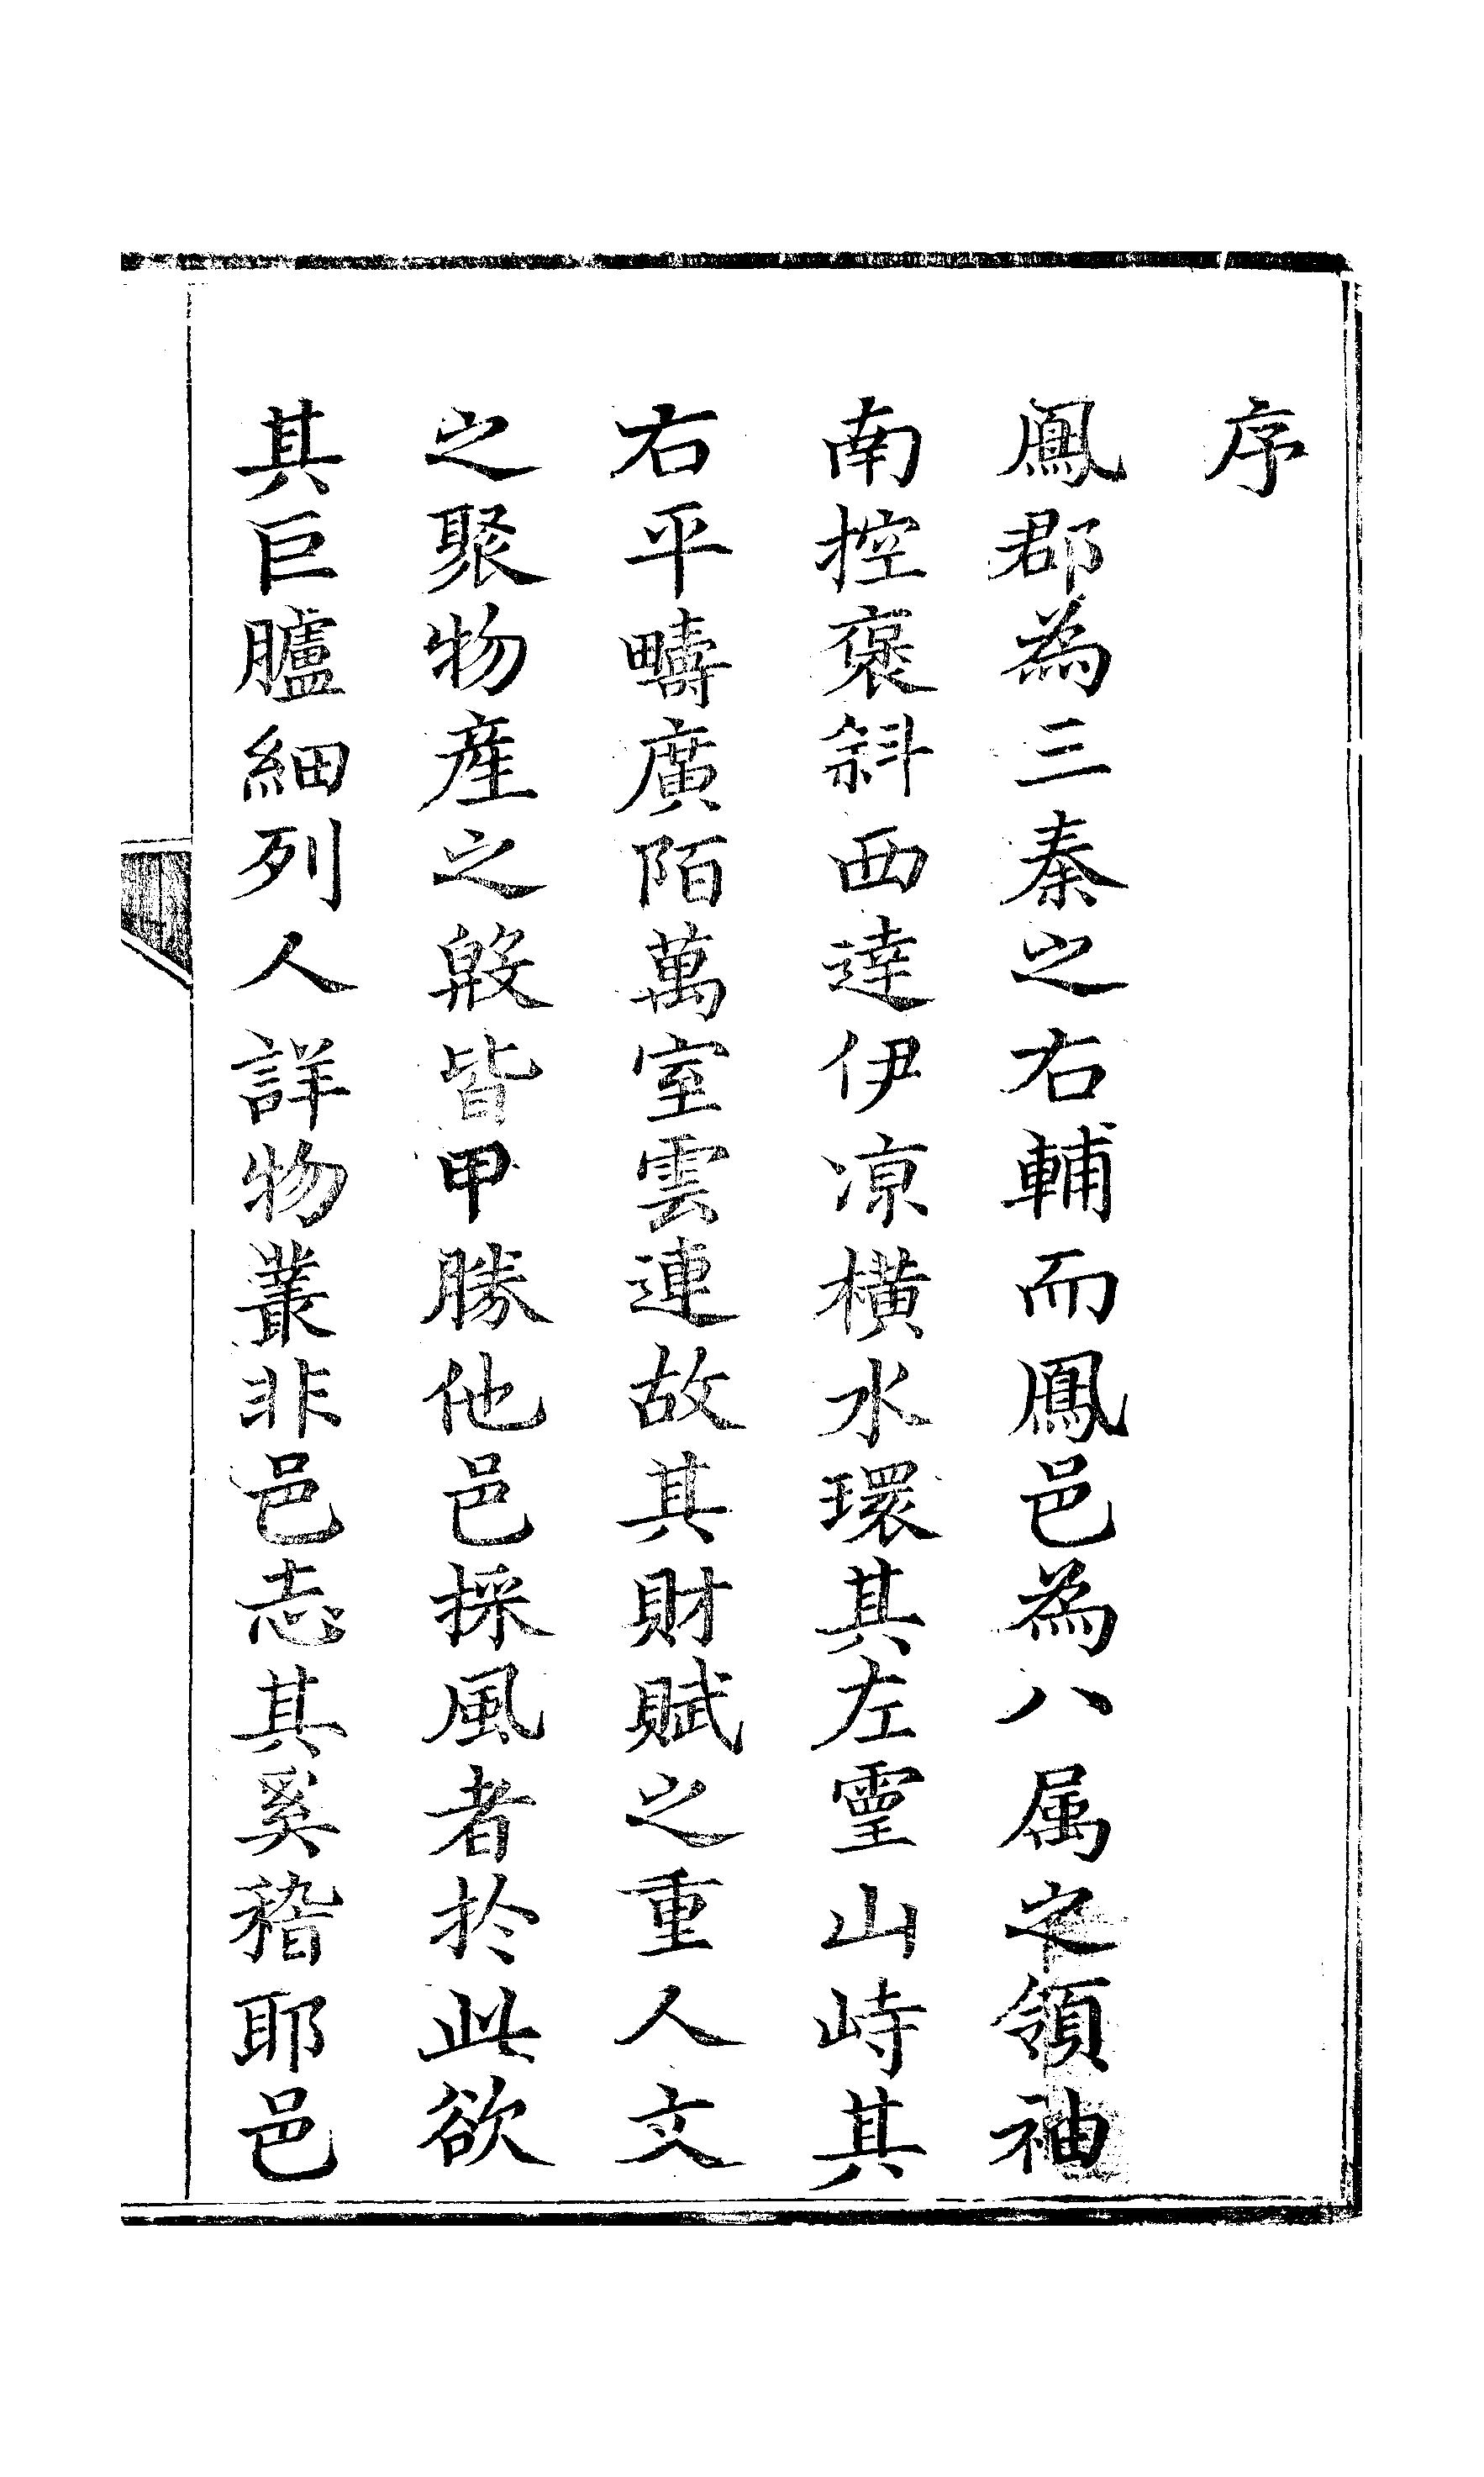 序
鳳郡為三秦之右輔而鳳邑為八属之領袖
南控褒斜西達伊凉橫水環其左靈山峙其
右平疇廣陌萬室雲連故其財賦之重人文
之聚物産之殷皆甲勝他邑採風者於此欲
其巨臚細列人詳物叢非邑志其奚稽耶邑